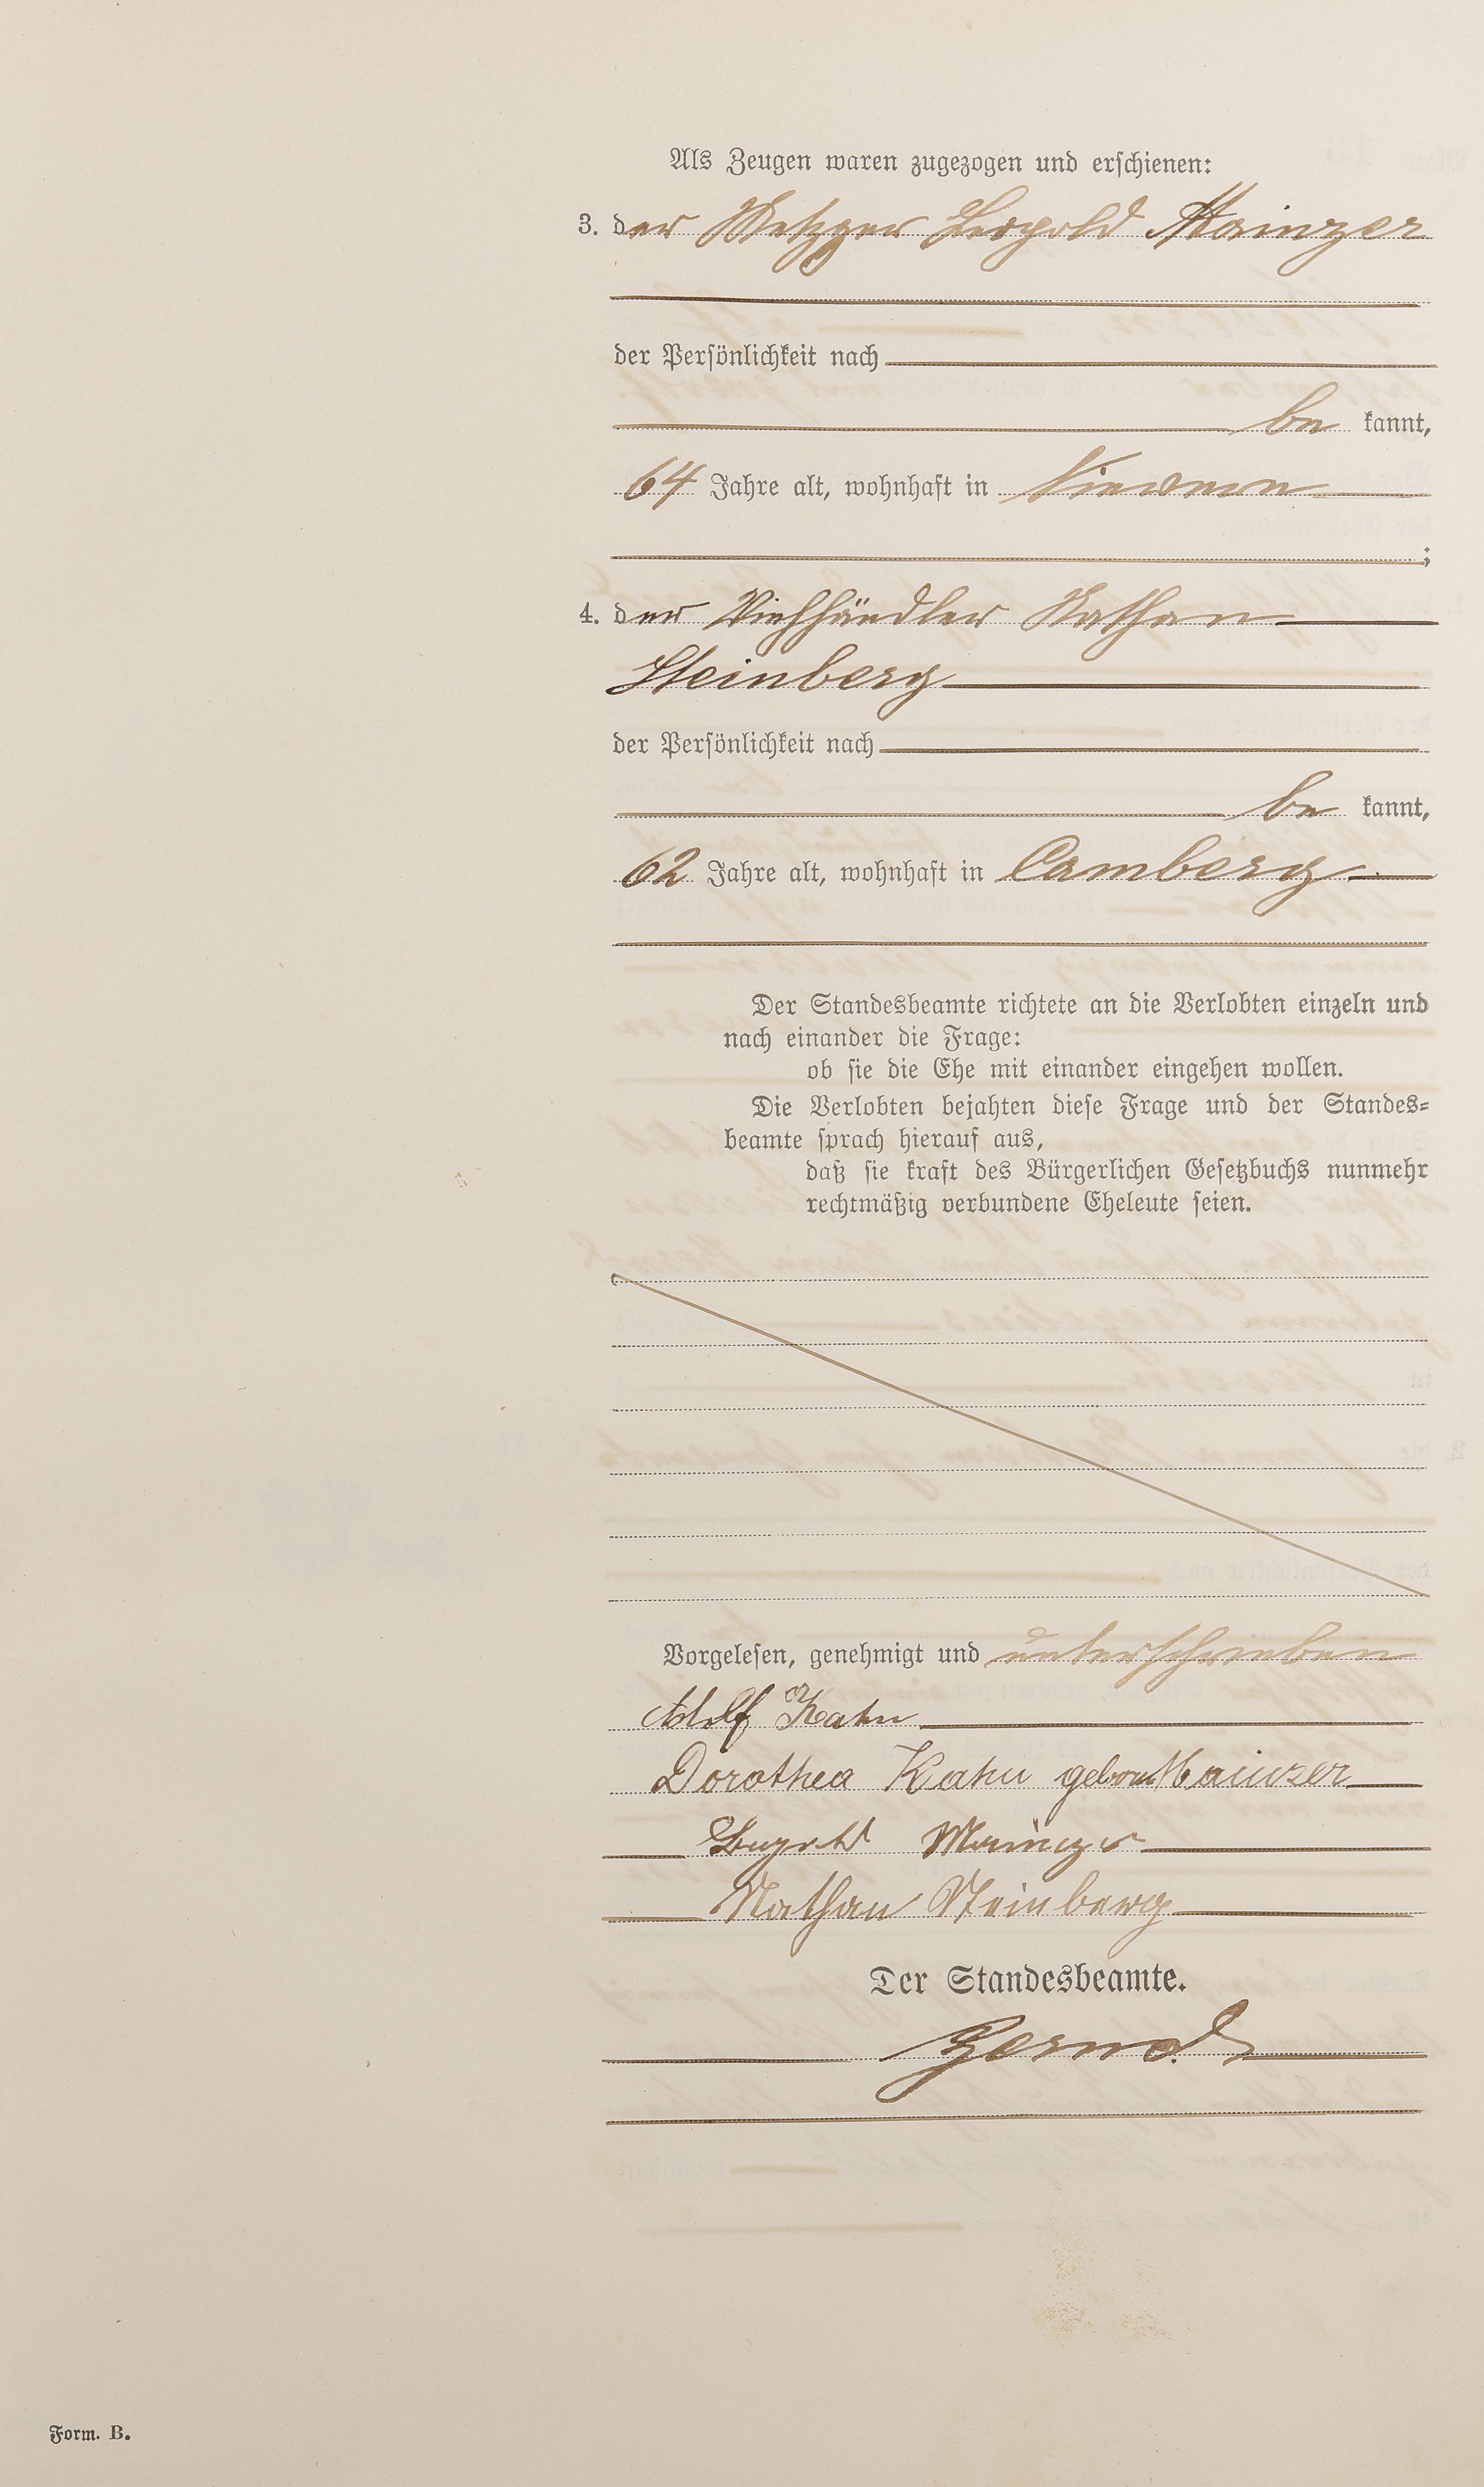 Als Zeugen waren zugezogen und erschienen:
3. der Metzger Leopold Mainzer
der Persönlichkeit nach
be kannt,
64 Jahre alt, wohnhaft in Nievern
;
4. der Viehhändler Nathan
Steinberg
der Persönlichkeit nach
be kannt,
62 Jahre alt, wohnhaft in Camberg
Der Standesbeamte richtete an die Verlobten einzeln und
nach einander die Frage:
ob sie die Ehe mit einander eingehen wollen.
Die Verlobten bejahten diese Frage und der Standes-
beamte sprach hierauf aus,
daß sie kraft des Bürgerlichen Gesetzbuchs nunmehr
rechtmäßig verbundene Eheleute seien.
Vorgelesen, genehmigt und unterschrieben
Adolf Kahn
Dorothea Kahn geborne Mainzer
Leopold Mainzer
Nathan Steinberg
Der Standesbeamte.
Form. B.